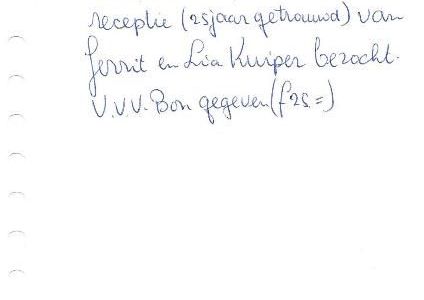 receptie (25 jaar getrouwd) van
Gerrit en Lia Kuiper bezocht.
V.V.V. Bon gegeven (f 25 =)